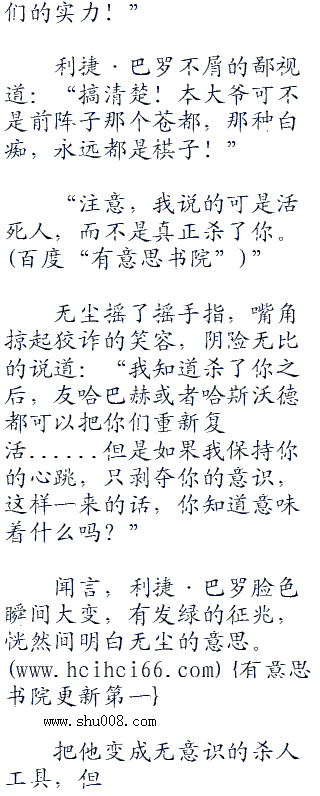 们的实力！”
利捷·巴罗不屑的鄙视
道：“搞清楚！本大爷可不
是前阵子那个苍都，那种白
痴，永远都是棋子！”
“注意，我说的可是活
死人，而不是真正杀了你。
(百度“有意思书院”)”
无尘摇了摇手指，嘴角
掠起狡诈的笑容，阴险无比
的说道：“我知道杀了你之
后，友哈巴赫或者哈斯沃德
都可以把你们重新复
活......但是如果我保持你
的心跳，只剥夺你的意识，
这样一来的话，你知道意味
着什么吗？”
闻言，利捷·巴罗脸色
瞬间大变，有发绿的征兆，
恍然间明白无尘的意思。
(www.hcihci66.com){有意思
书院更新第一}
www.shu008.com
把他变成无意识的杀人
工具，但